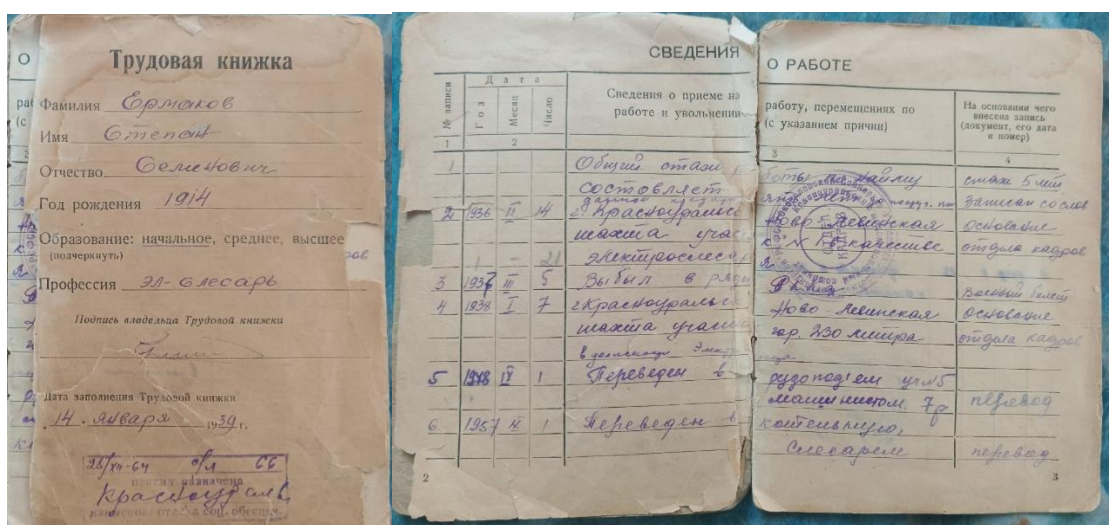 Трудовая книжка
Фамилия Ермаков
Имя Степан
Отчество Семенович
Год рождения 1914
Образование: начальное, среднее, высшее
(подчеркнуть)
Профессия эл-слесарь
Подпись владельца Трудовой книжки
Дата заполнения Трудовой книжки
14. января 1939 г.
25/XII-64
пенсия назначена
Красноуральск
СВЕДЕНИЯ О РАБОТЕ
№ записи
Дата
Год
Месяц
Число
Сведения о приеме на работу, перемещениях по
работе и увольнении (с указанием причин)
На основании чего
внесена запись
(документ, его дата
и номер)
1 2 3 4
1 Общий стаж работы по найму стаж 5 лет
составляет записан со слов
2 1936 II 14 г. Красноуральск Ново-Левинская основание
шахта участок в качестве отдела кадров
электрослесаря
3 1937 III 5 Выбыл в ряды Военный билет
4 1938 I 7 г. Красноуральск Ново-Левинская основание
шахта участок гор. 230 метра отдела кадров
в должности
5 IV 1 Переведен в рудоподъем уч №5
машинистом 7р перевод
6 1957 X 1 Переведен в котельную,
Слесарем перевод
2
3